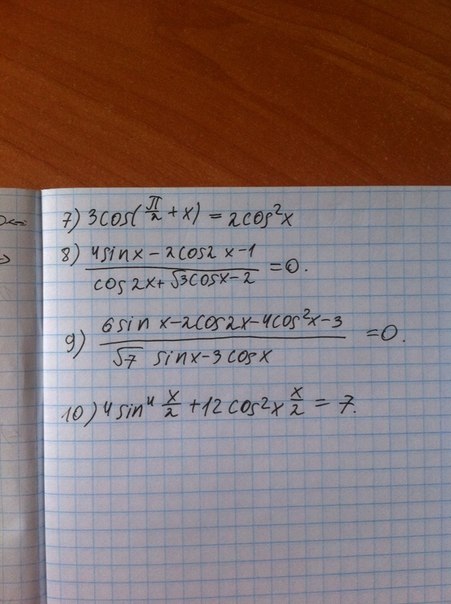 7) 3cos(π/2 + x) = 2cos²x
8) (4sinx - 2cos2x - 1)/(cos2x + √3cosx - 2) = 0.
9) (6sinx - 2cos2x - 4cos²x - 3)/(√7 sinx - 3cosx) = 0.
10) 4sin⁴ x/2 + 12cos²x x/2 = 7.